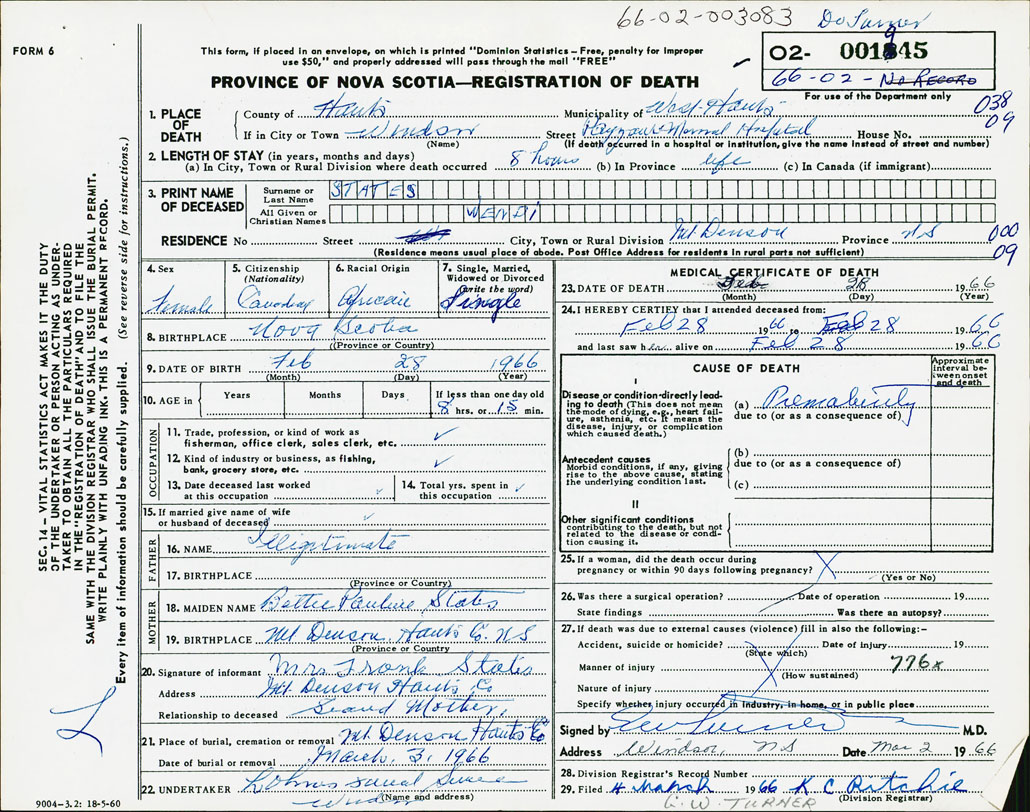 66-02-003083
FORM 6
This form, if placed in an envelope, on which is printed "Dominion Statistics – Free, penalty for improper
use $50," and properly addressed will pass through the mail "FREE"
PROVINCE OF NOVA SCOTIA—REGISTRATION OF DEATH
02- 001845
9
66-02- No Record
For use of the Department only
038
09
1. PLACE OF DEATH
County of Hants Municipality of West Hants
If in City or Town Windsor Street Payzant Memorial Hospital House No.
(Name) (If death occurred in a hospital or institution, give the name instead of street and number)
2. LENGTH OF STAY (in years, months and days)
(a) In City, Town or Rural Division where death occurred 8 hours (b) In Province life (c) In Canada (if immigrant)
3. PRINT NAME OF DECEASED
Surname or Last Name STATES
All Given or Christian Names WENDI
RESIDENCE No Street City, Town or Rural Division Mt Denson Province NS
000
09
(Residence means usual place of abode. Post Office Address for residents in rural parts not sufficient)
4. Sex Female
5. Citizenship (Nationality) Canadian
6. Racial Origin African
7. Single, Married, Widowed or Divorced (write the word) Single
8. BIRTHPLACE Nova Scotia
(Province or Country)
9. DATE OF BIRTH Feb 28 1966
(Month) (Day) (Year)
10. AGE in Years Months Days If less than one day old
8 hrs. or 15 min.
OCCUPATION
11. Trade, profession, or kind of work as
fisherman, office clerk, sales clerk, etc. ✓
12. Kind of industry or business, as fishing,
bank, grocery store, etc. ✓
13. Date deceased last worked
at this occupation ✓
14. Total yrs. spent in
this occupation ✓
15. If married give name of wife
or husband of deceased ✓
FATHER
16. NAME Illigitimate
17. BIRTHPLACE
(Province or Country)
MOTHER
18. MAIDEN NAME Bettie Pauline States
19. BIRTHPLACE Mt Denson Hants Co. NS
(Province or Country)
20. Signature of informant Mrs Frank States
Address Mt Denson Hants Co
Relationship to deceased Grand Mother
21. Place of burial, cremation or removal Mt. Denson Hants Co
Date of burial or removal March, 3, 1966
22. UNDERTAKER
(Name and address)
MEDICAL CERTIFICATE OF DEATH
23. DATE OF DEATH Feb 28 1966
(Month) (Day) (Year)
24. I HEREBY CERTIFY that I attended deceased from:
Feb 28 1966 to Feb 28 1966
and last saw her alive on Feb 28 1966
CAUSE OF DEATH
Approximate interval between onset and death
I
Disease or condition directly leading to death (This does not mean the mode of dying, e.g., heart failure, asthenia, etc. It means the disease, injury, or complication which caused death.)
(a) Prematurity
due to (or as a consequence of)
Antecedent causes
Morbid conditions, if any, giving rise to the above cause, stating the underlying condition last.
(b)
due to (or as a consequence of)
(c)
II
Other significant conditions
contributing to the death, but not related to the disease or condition causing it.
25. If a woman, did the death occur during
pregnancy or within 90 days following pregnancy?
(Yes or No)
26. Was there a surgical operation? Date of operation 19
State findings Was there an autopsy?
27. If death was due to external causes (violence) fill in also the following:–
Accident, suicide or homicide? Date of injury 19
(State which)
Manner of injury 776x
(How sustained)
Nature of injury
Specify whether injury occurred in industry, in home, or in public place
Signed by M.D.
Address Windsor, NS Date Mar 2 1966
28. Division Registrar's Record Number
29. Filed 4 March 1966 K C Ritchie
(Division Registrar)
G. W. TURNER
SEC. 14 – VITAL STATISTICS ACT MAKES IT THE DUTY
OF THE UNDERTAKER OR PERSON ACTING AS UNDERTAKER
TO OBTAIN ALL THE PARTICULARS REQUIRED
IN THE "REGISTRATION OF DEATH" AND TO FILE THE
SAME WITH THE DIVISION REGISTRAR WHO SHALL ISSUE THE BURIAL PERMIT.
WRITE PLAINLY WITH UNFADING INK. THIS IS A PERMANENT RECORD.
Every item of information should be carefully supplied. (See reverse side for instructions.)
9004-3.2: 18-5-60